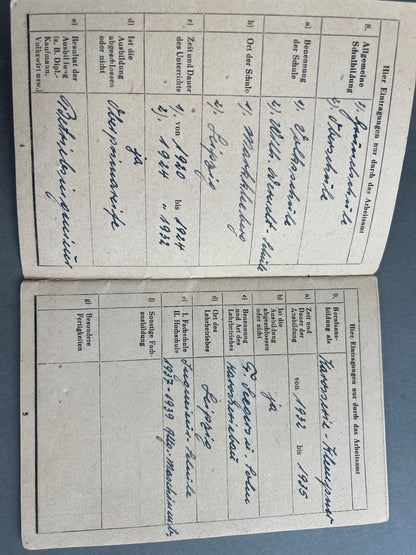 Hier Eintragungen nur durch das Arbeitsamt
8. Allgemeine Schulbildung
1). Grundschule
2). Oberschule
a) Benennung der Schule
1). Volksschule
2). Wilh. Wundt-Schule
b) Ort der Schule
1). Markkleeberg
2). Leipzig
c) Zeit und Dauer des Unterrichts
1). von 1920 bis 1924
2). " 1924 " 1932
d) Ist die Ausbildung abgeschlossen oder nicht
ja
Oberprimareife
e) Resultat der Ausbildung (z. B. Dipl.-Kaufmann, Volkswirt usw.)
Betriebsingenieur
4
Hier Eintragungen nur durch das Arbeitsamt
9. Berufsausbildung als
Karosserie-Klempner
a) Zeit und Dauer der Ausbildung
von 1932 bis 1935
b) Ist die Ausbildung abgeschlossen oder nicht
ja
c) Benennung und Art des Lehrbetriebes
u. Sohn
Karosseriebau
d) Ort des Lehrbetriebes
Leipzig
e) I. Fachschule
II. Hochschule
Ingenieur-Schule
1937-1939 Allg. Maschinenb.
f) Sonstige Fachausbildung
g) Besondere Fertigkeiten
5